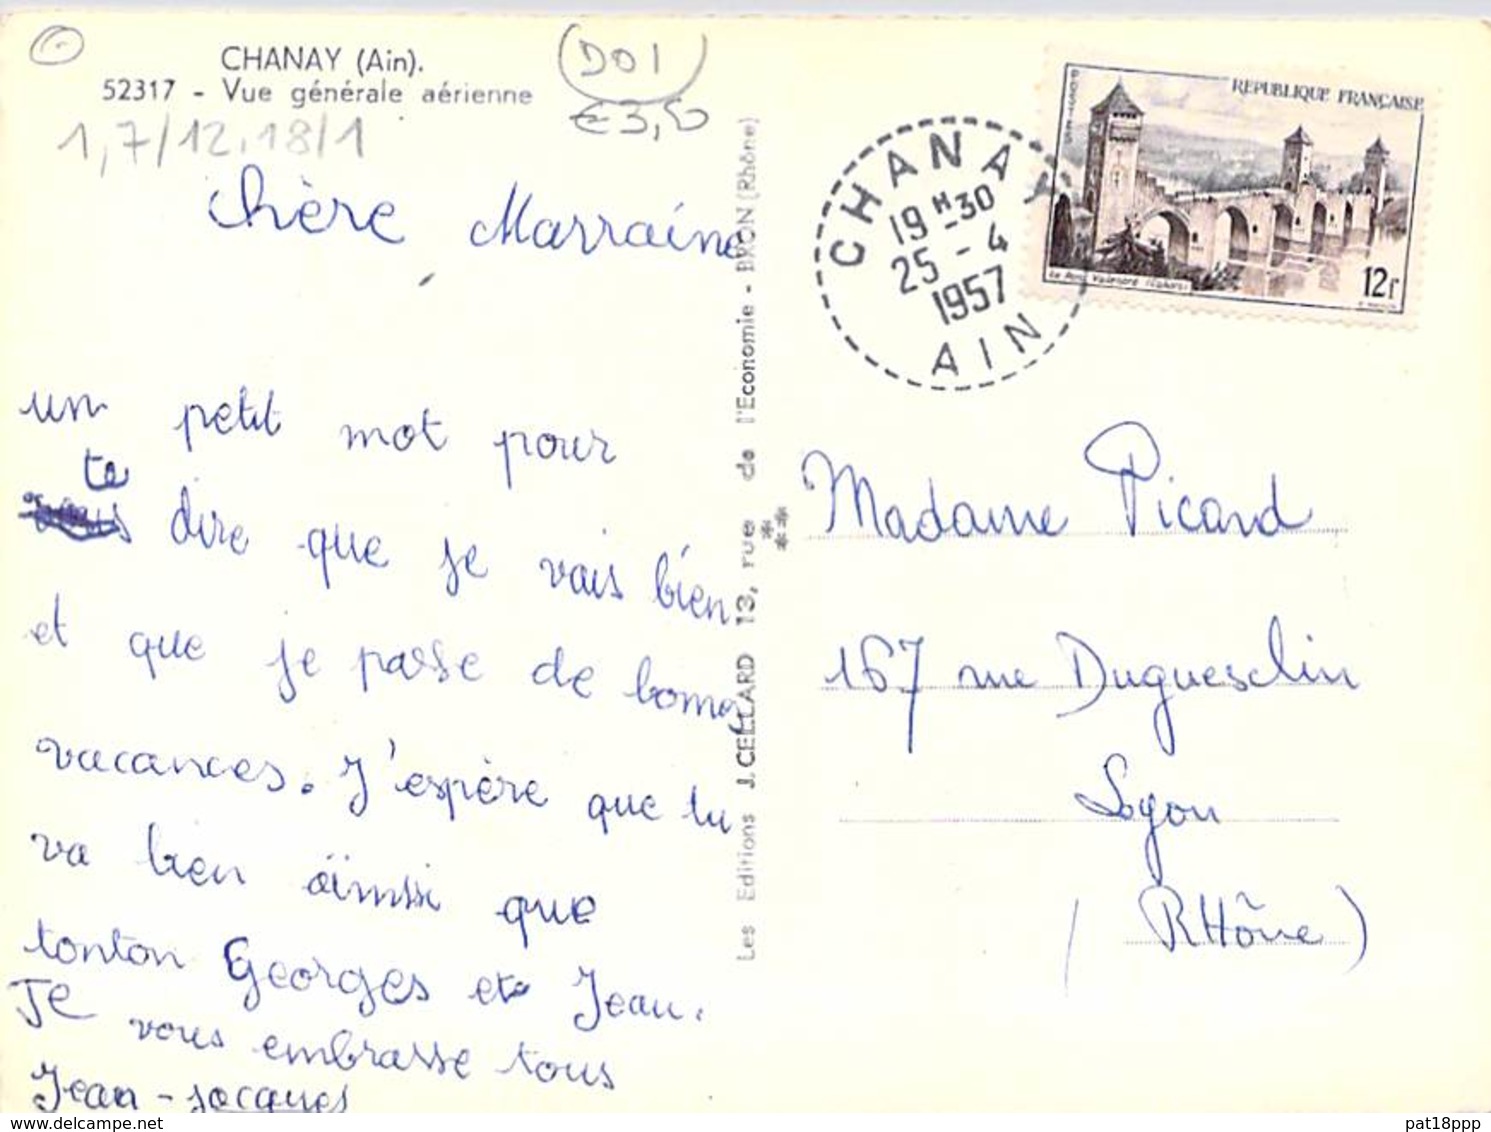 CHANAY (Ain).
52317 - Vue générale aérienne
D01
€3,50
1,7/12.18/1
Chère Marraine
un petit mot pour
te
vous dire que je vais bien
et que je passe de bonnes
vacances. J'espère que tu
va bien äinsi que
tonton Georges et Jean.
Je vous embrasse tous
Jean-Jacques
Les Editions J. CELLARD 13, rue de l'Economie - BRON (Rhône)
CHANAY
19 H -30
25 - 4
1957
AIN
REPUBLIQUE FRANÇAISE
POSTES
Le Pont Valentré (Cahors)
12f
Madame Picard
167 rue Duguesclin
Lyon
(RHône)
pat18ppp